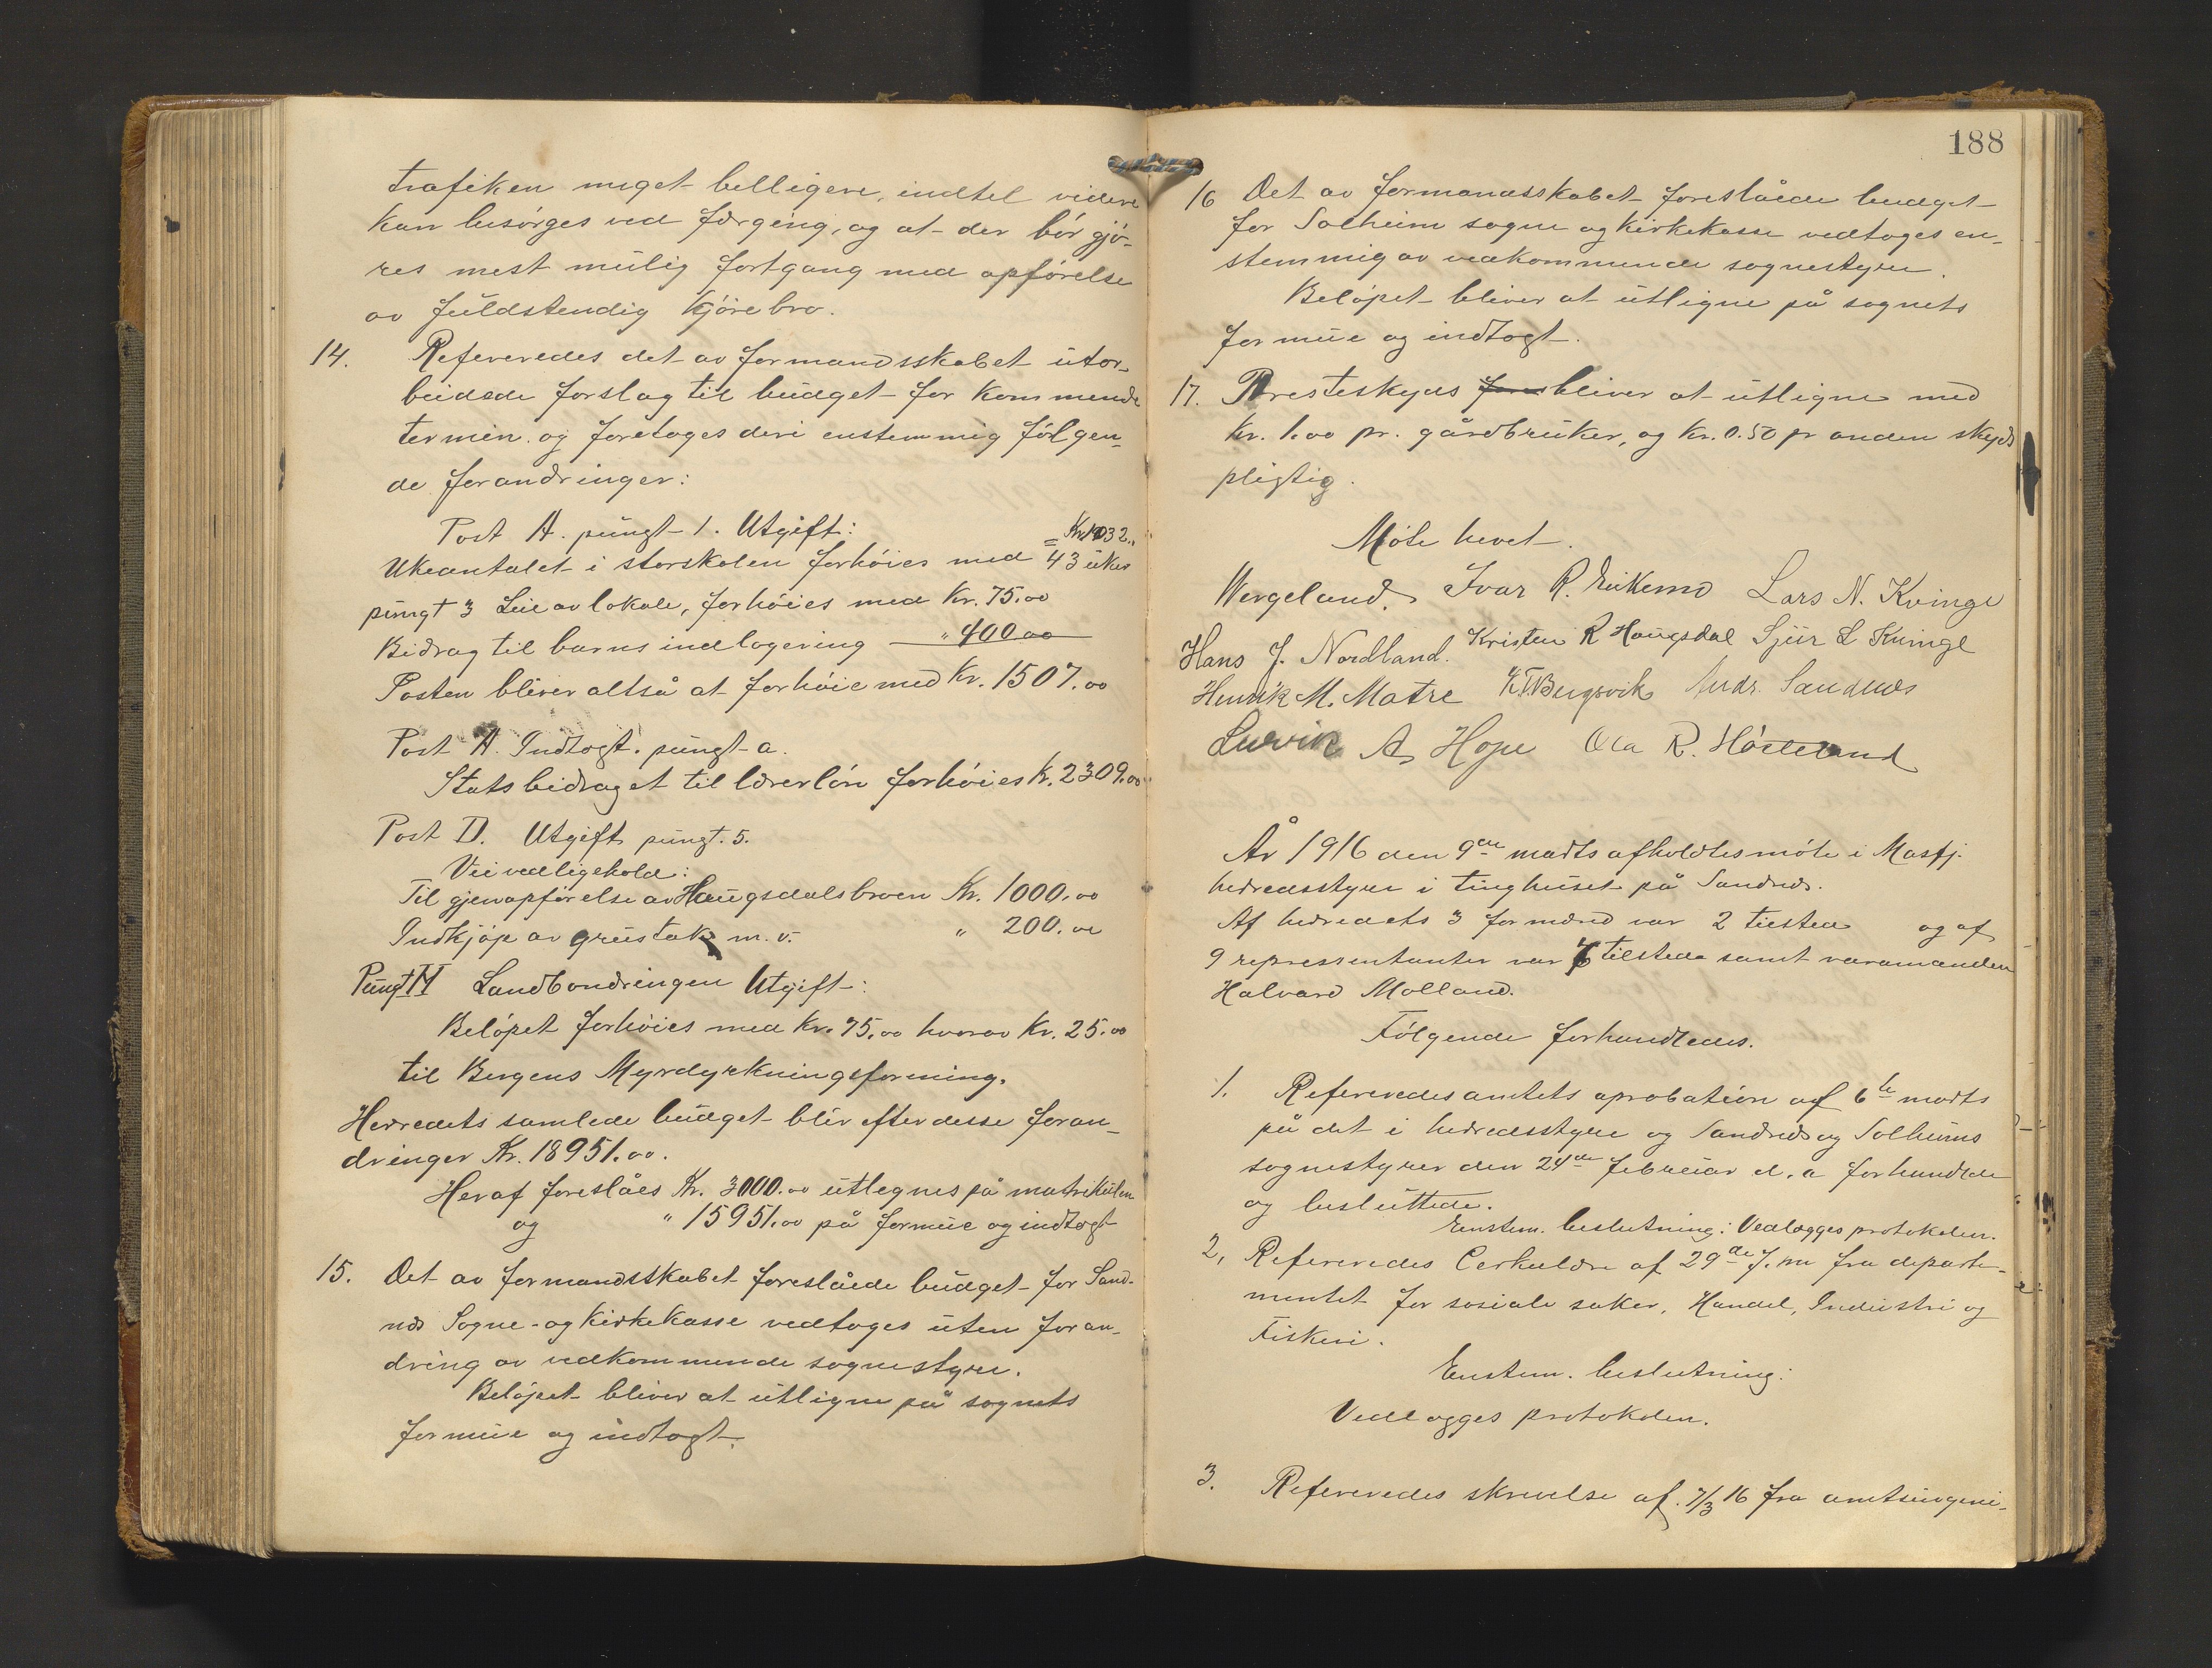 trafiken meget billigere, indtil videre
kan besörges ved færging, og at der bör gjö-
res mest mulig fortgang med opförelse
av fuldstendig kjörebro.
14. Refereredes det av formandsskabet utar-
beidede forslag til budget for kommende
termin og foretoges deri enstemmig fölgen-
de forandringer:
Post A. pungt 1. Utgift:
Kr. 1032..
Ukeantalet i storskolen forhöies med = 43 uker
pungt 3 Leie av lokale, forhöies med Kr. 75.00
Bidrag til barns indlogering " 400 00
Posten bliver altså at forhöie med Kr. 1507.00
Post A. Indtægt. pungt a.
Statsbidraget til lærerlön forhöies Kr. 2309.00
Post D. Utgift pungt. 5.
Veivedligehold:
Til gjenopförelse av Haugsdalsbroen Kr. 1000.00
Indkjöp av grustak m. v. " 200.00
Pungt H Landbondringen Utgift:
Belöpet forhöies med Kr. 75.00 hvorav Kr. 25.00
til Bergens Myrdyrkningsforening.
Herredets samlede budget blir efter desse foran-
dringer Kr. 18951.00.
Heraf foreslåes Kr. 3000.00 utlegnes på matrikulen
og " 15951.00 på formue og indtægt
15. Det av formandsskabet foreslåede budget for Sand-
nes Sogne- og kirkekasse vedtoges uten foran-
dring av vedkommende sognestyre.
Belöpet bliver at utligne på sognets
formue og indtægt.
188
16 Det av formandsskabet foreslåede budget
for Solheim sogne og kirkekasse vedtoges en-
stemmig av vedkommende sognestyre.
Belöpet bliver at utligne på sognets
formue og indtægt.
17. Presteskyds bliver at utligne med
Kr. 1.00 pr. gårdbruker, og Kr. 0.50 pr anden skyds
pligtig.
Möte hevet.
Wergeland. Ivar R. Eikemo Lars N. Kvinge
Hans J. Nordland. Kristen R Haugsdal Sjur L Kvinge
Henrik M. Matre K. T. Bergsvik Andr. Sandnes
Ludvik A. Hope Ola R. Hösteland
År 1916 den 9de marts afholdtes möte i Masfj.
herredsstyre i tinghuset på Sandnes.
Af herredets 3 formænd var 2 tilstede og af
9 representanter var 6 tilstede samt varamanden
Halvard Molland.
Fölgende forhandledes.
1. Refereredes amtets aprobation af 6te marts
på det i herredsstyre og Sandnes og Solheims
sognestyrer den 24de februar d. a forhandlede
og besluttede.
Enstem. beslutning: Vedlægges protokolen.
2, Refereredes Cerkulære af 29de f. m fra departe-
mentet for sosiale saker, Handel, Industri og
Fiskeri.
Enstem. beslutning:
Vedlægges protokolen.
3. Refereredes skrivelse af 7/3 16 fra amtsingeni-